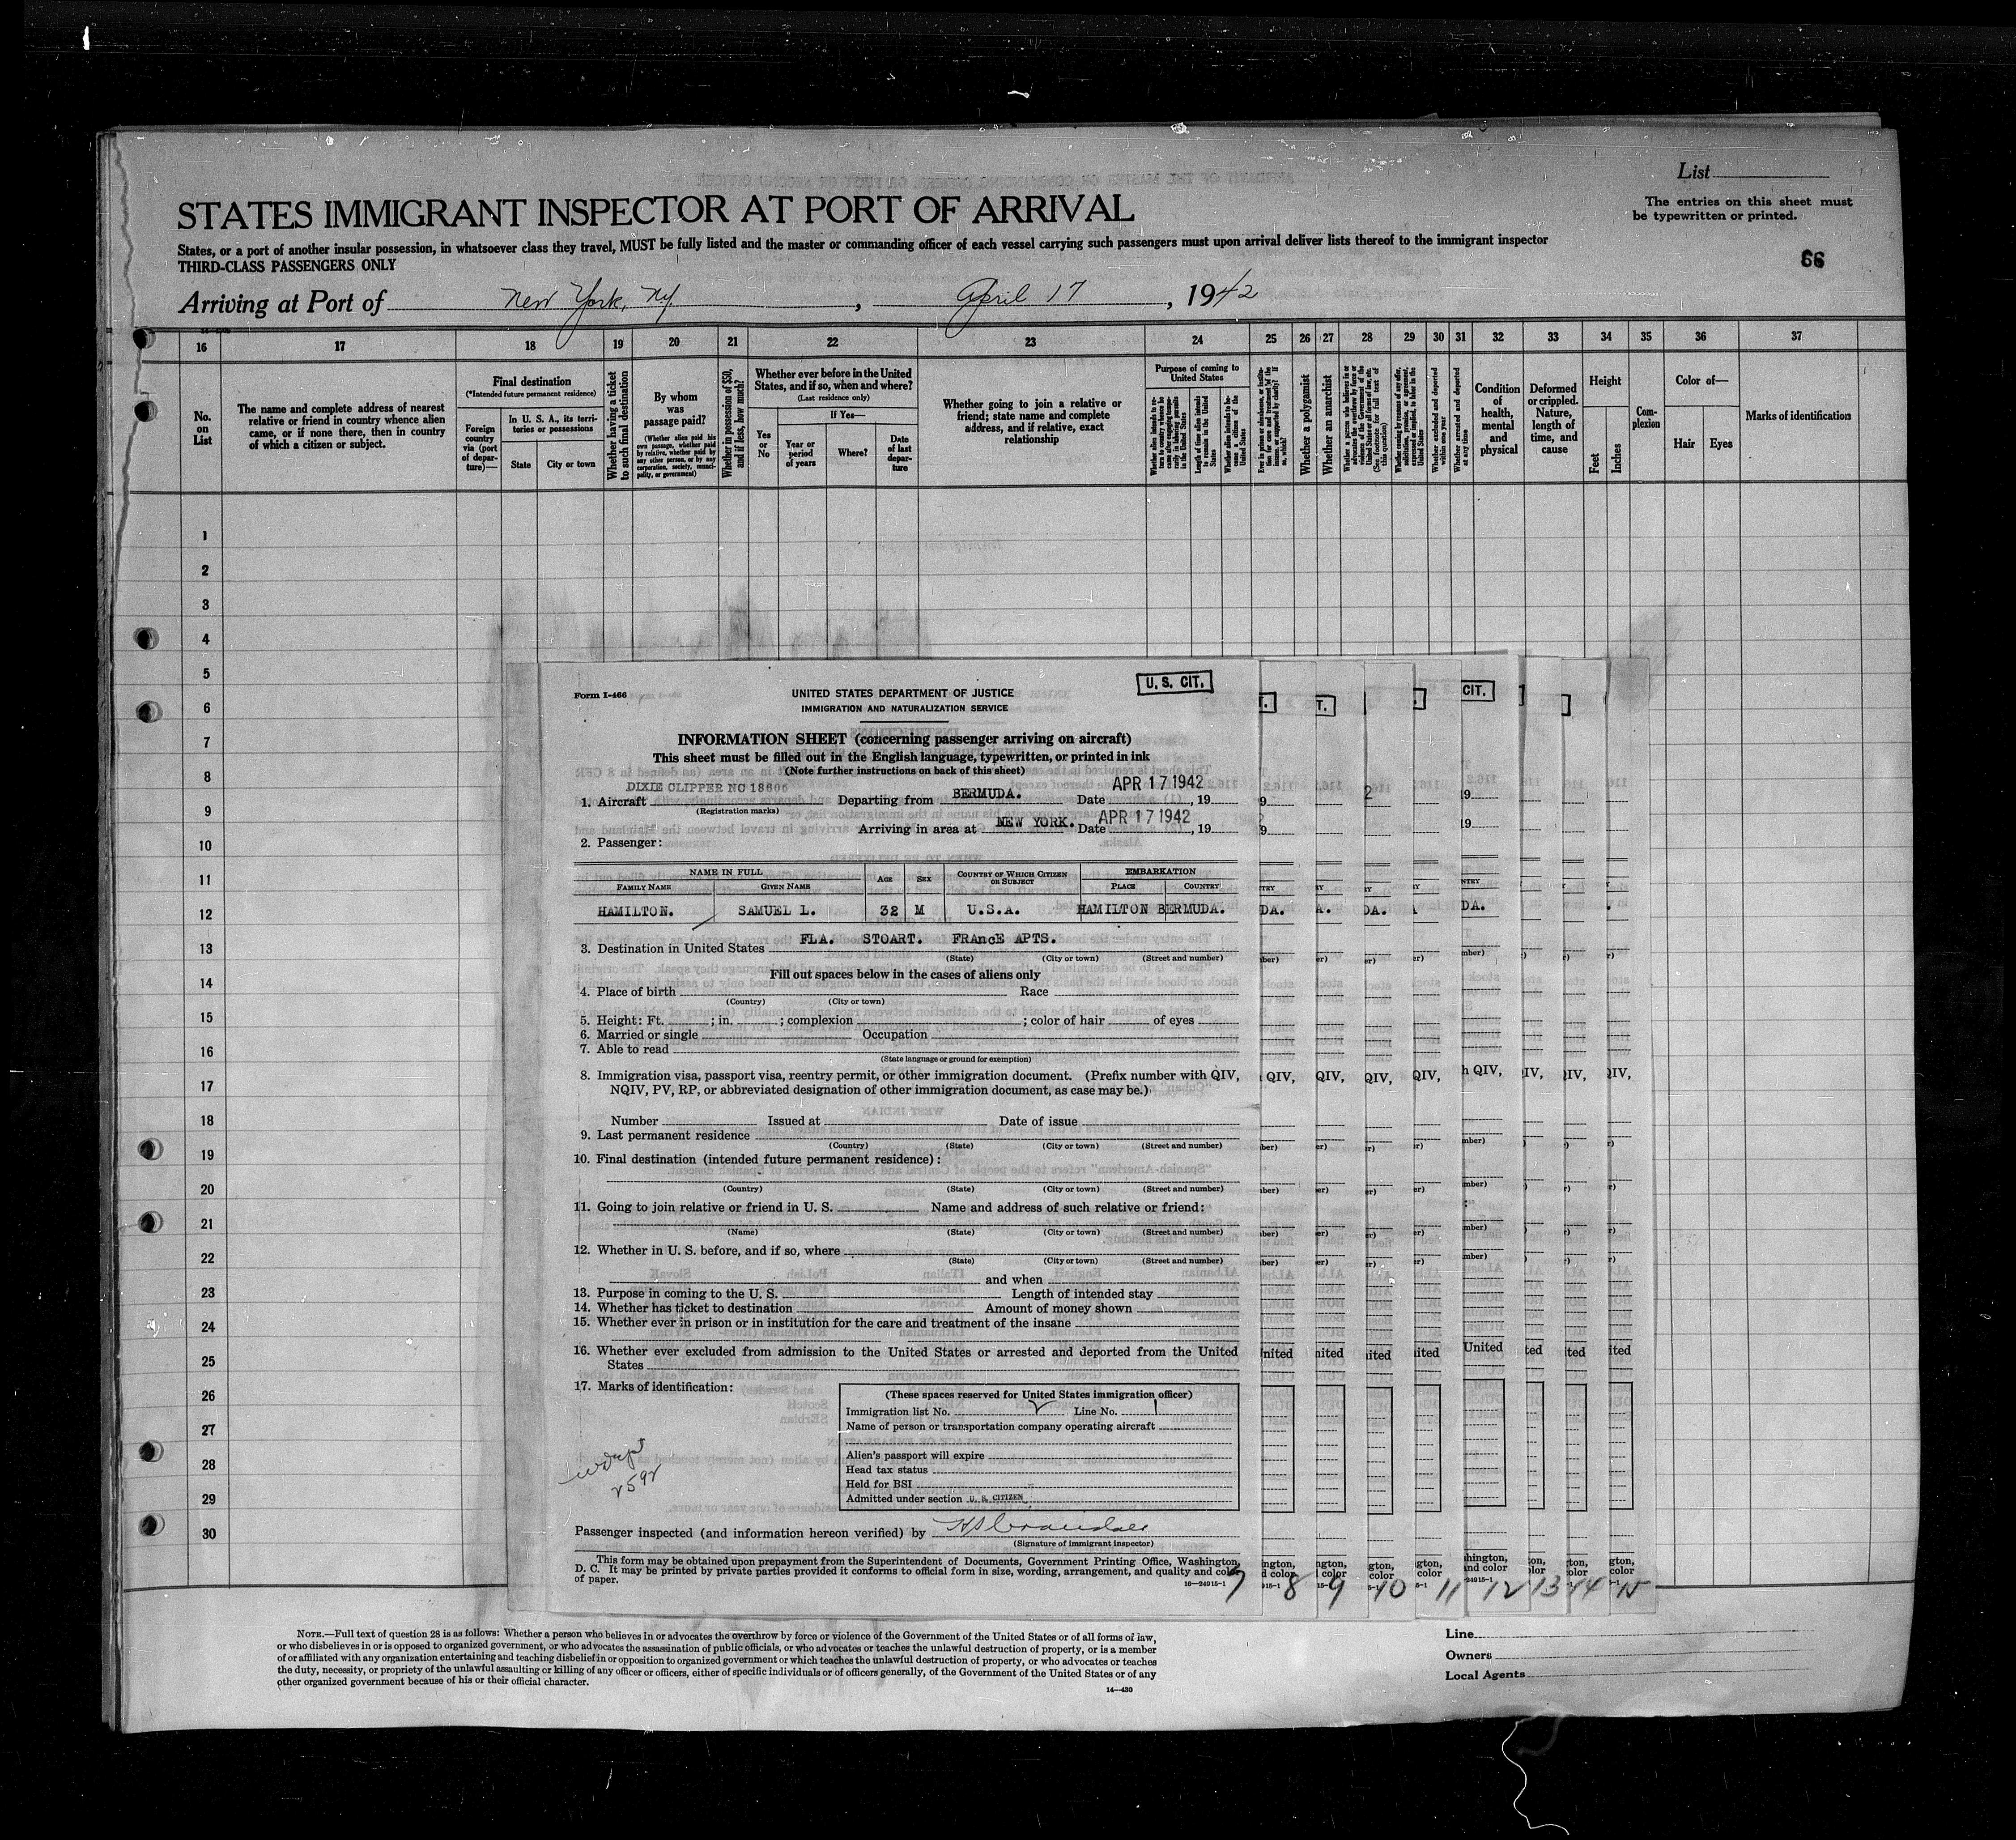 List
The entries on this sheet must
be typewritten or printed.
66
STATES IMMIGRANT INSPECTOR AT PORT OF ARRIVAL
States, or a port of another insular possession, in whatsoever class they travel, MUST be fully listed and the master or commanding officer of each vessel carrying such passengers must upon arrival deliver lists thereof to the immigrant inspector
THIRD-CLASS PASSENGERS ONLY
Arriving at Port of New York, NY, April 17, 1942
16 17 18 19 20 21 22 23 24 25 26 27 28 29 30 31 32 33 34 35 36 37
No. on List
The name and complete address of nearest
relative or friend in country whence alien
came, or if none there, then in country
of which a citizen or subject.
Final destination
(*Intended future permanent residence)
Foreign country via (port of departure)—
In U. S. A., its territories or possessions
State
City or town
Whether having a ticket to such final destination
By whom was passage paid?
(Whether alien paid his own passage, whether paid by relative, whether paid by any other person, or by any corporation, society, municipality, or government)
Whether in possession of $50, and if less, how much?
Whether ever before in the United
States, and if so, when and where?
(Last residence only)
Yes or No
If Yes—
Year or period of years
Where?
Date of last departure
Whether going to join a relative or
friend; state name and complete
address, and if relative, exact
relationship
Purpose of coming to
United States
Length of time alien intends to remain in the United States
Whether alien intends to become a citizen of the United States
Whether a polygamist
Whether an anarchist
Whether excluded and deported within one year
Whether arrested and deported at any time
Condition of health, mental and physical
Deformed or crippled. Nature, length of time, and cause
Height
Feet
Inches
Complexion
Color of—
Hair
Eyes
Marks of identification
1
2
3
4
5
6
7
8
9
10
11
12
13
14
15
16
17
18
19
20
21
22
23
24
25
26
27
28
29
30
Form I-466
UNITED STATES DEPARTMENT OF JUSTICE
IMMIGRATION AND NATURALIZATION SERVICE
U. S. CIT.
INFORMATION SHEET (concerning passenger arriving on aircraft)
This sheet must be filled out in the English language, typewritten, or printed in ink
(Note further instructions on back of this sheet)
1. Aircraft DIXIE CLIPPER NC 18605 Departing from BERMUDA. Date APR 17 1942, 19
(Registration marks)
Arriving in area at NEW YORK. Date APR 17 1942, 19
2. Passenger:
NAME IN FULL
FAMILY NAME GIVEN NAME AGE SEX COUNTRY OF WHICH CITIZEN OR SUBJECT EMBARKATION PLACE COUNTRY
HAMILTON. SAMUEL L. 32 M U.S.A. HAMILTON BERMUDA.
3. Destination in United States FLA. STOART. FRAncE APTS.
(State) (City or town) (Street and number)
Fill out spaces below in the cases of aliens only
4. Place of birth Race
(Country) (City or town)
5. Height: Ft. ; in. ; complexion ; color of hair of eyes
6. Married or single Occupation
7. Able to read
(State language or ground for exemption)
8. Immigration visa, passport visa, reentry permit, or other immigration document. (Prefix number with QIV,
NQIV, PV, RP, or abbreviated designation of other immigration document, as case may be.)
Number Issued at Date of issue
9. Last permanent residence
(Country) (State) (City or town) (Street and number)
10. Final destination (intended future permanent residence):
(Country) (State) (City or town) (Street and number)
11. Going to join relative or friend in U. S. Name and address of such relative or friend:
(Name) (State) (City or town) (Street and number)
12. Whether in U. S. before, and if so, where
(State) (City or town) (Street and number)
and when
13. Purpose in coming to the U. S. Length of intended stay
14. Whether has ticket to destination Amount of money shown
15. Whether ever in prison or in institution for the care and treatment of the insane
16. Whether ever excluded from admission to the United States or arrested and deported from the United
States
17. Marks of identification:
(These spaces reserved for United States immigration officer)
Immigration list No. 2 Line No. 1
Name of person or transportation company operating aircraft
Alien's passport will expire
Head tax status
Held for BSI
Admitted under section U. S. CITIZEN
Passenger inspected (and information hereon verified) by
(Signature of immigrant inspector)
This form may be obtained upon prepayment from the Superintendent of Documents, Government Printing Office, Washington,
D. C. It may be printed by private parties provided it conforms to official form in size, wording, arrangement, and quality and color
of paper.
16—24915-1
7 8 9 10 11 12 13 14 15
NOTE.—Full text of question 28 is as follows: Whether a person who believes in or advocates the overthrow by force or violence of the Government of the United States or of all forms of law,
or who disbelieves in or is opposed to organized government, or who advocates the assassination of public officials, or who advocates or teaches the unlawful destruction of property, or is a member
of or affiliated with any organization entertaining and teaching disbelief in or opposition to organized government or which teaches the unlawful destruction of property, or who advocates or teaches
the duty, necessity, or propriety of the unlawful assaulting or killing of any officer or officers, either of specific individuals or of officers generally, of the Government of the United States or of any
other organized government because of his or their official character.
14—430
Line
Owners
Local Agents